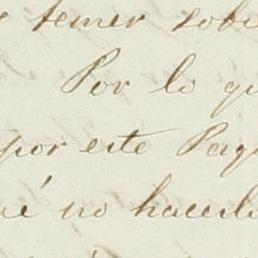 temer sobe
Por lo qu
por este Paq
é no hacerlo